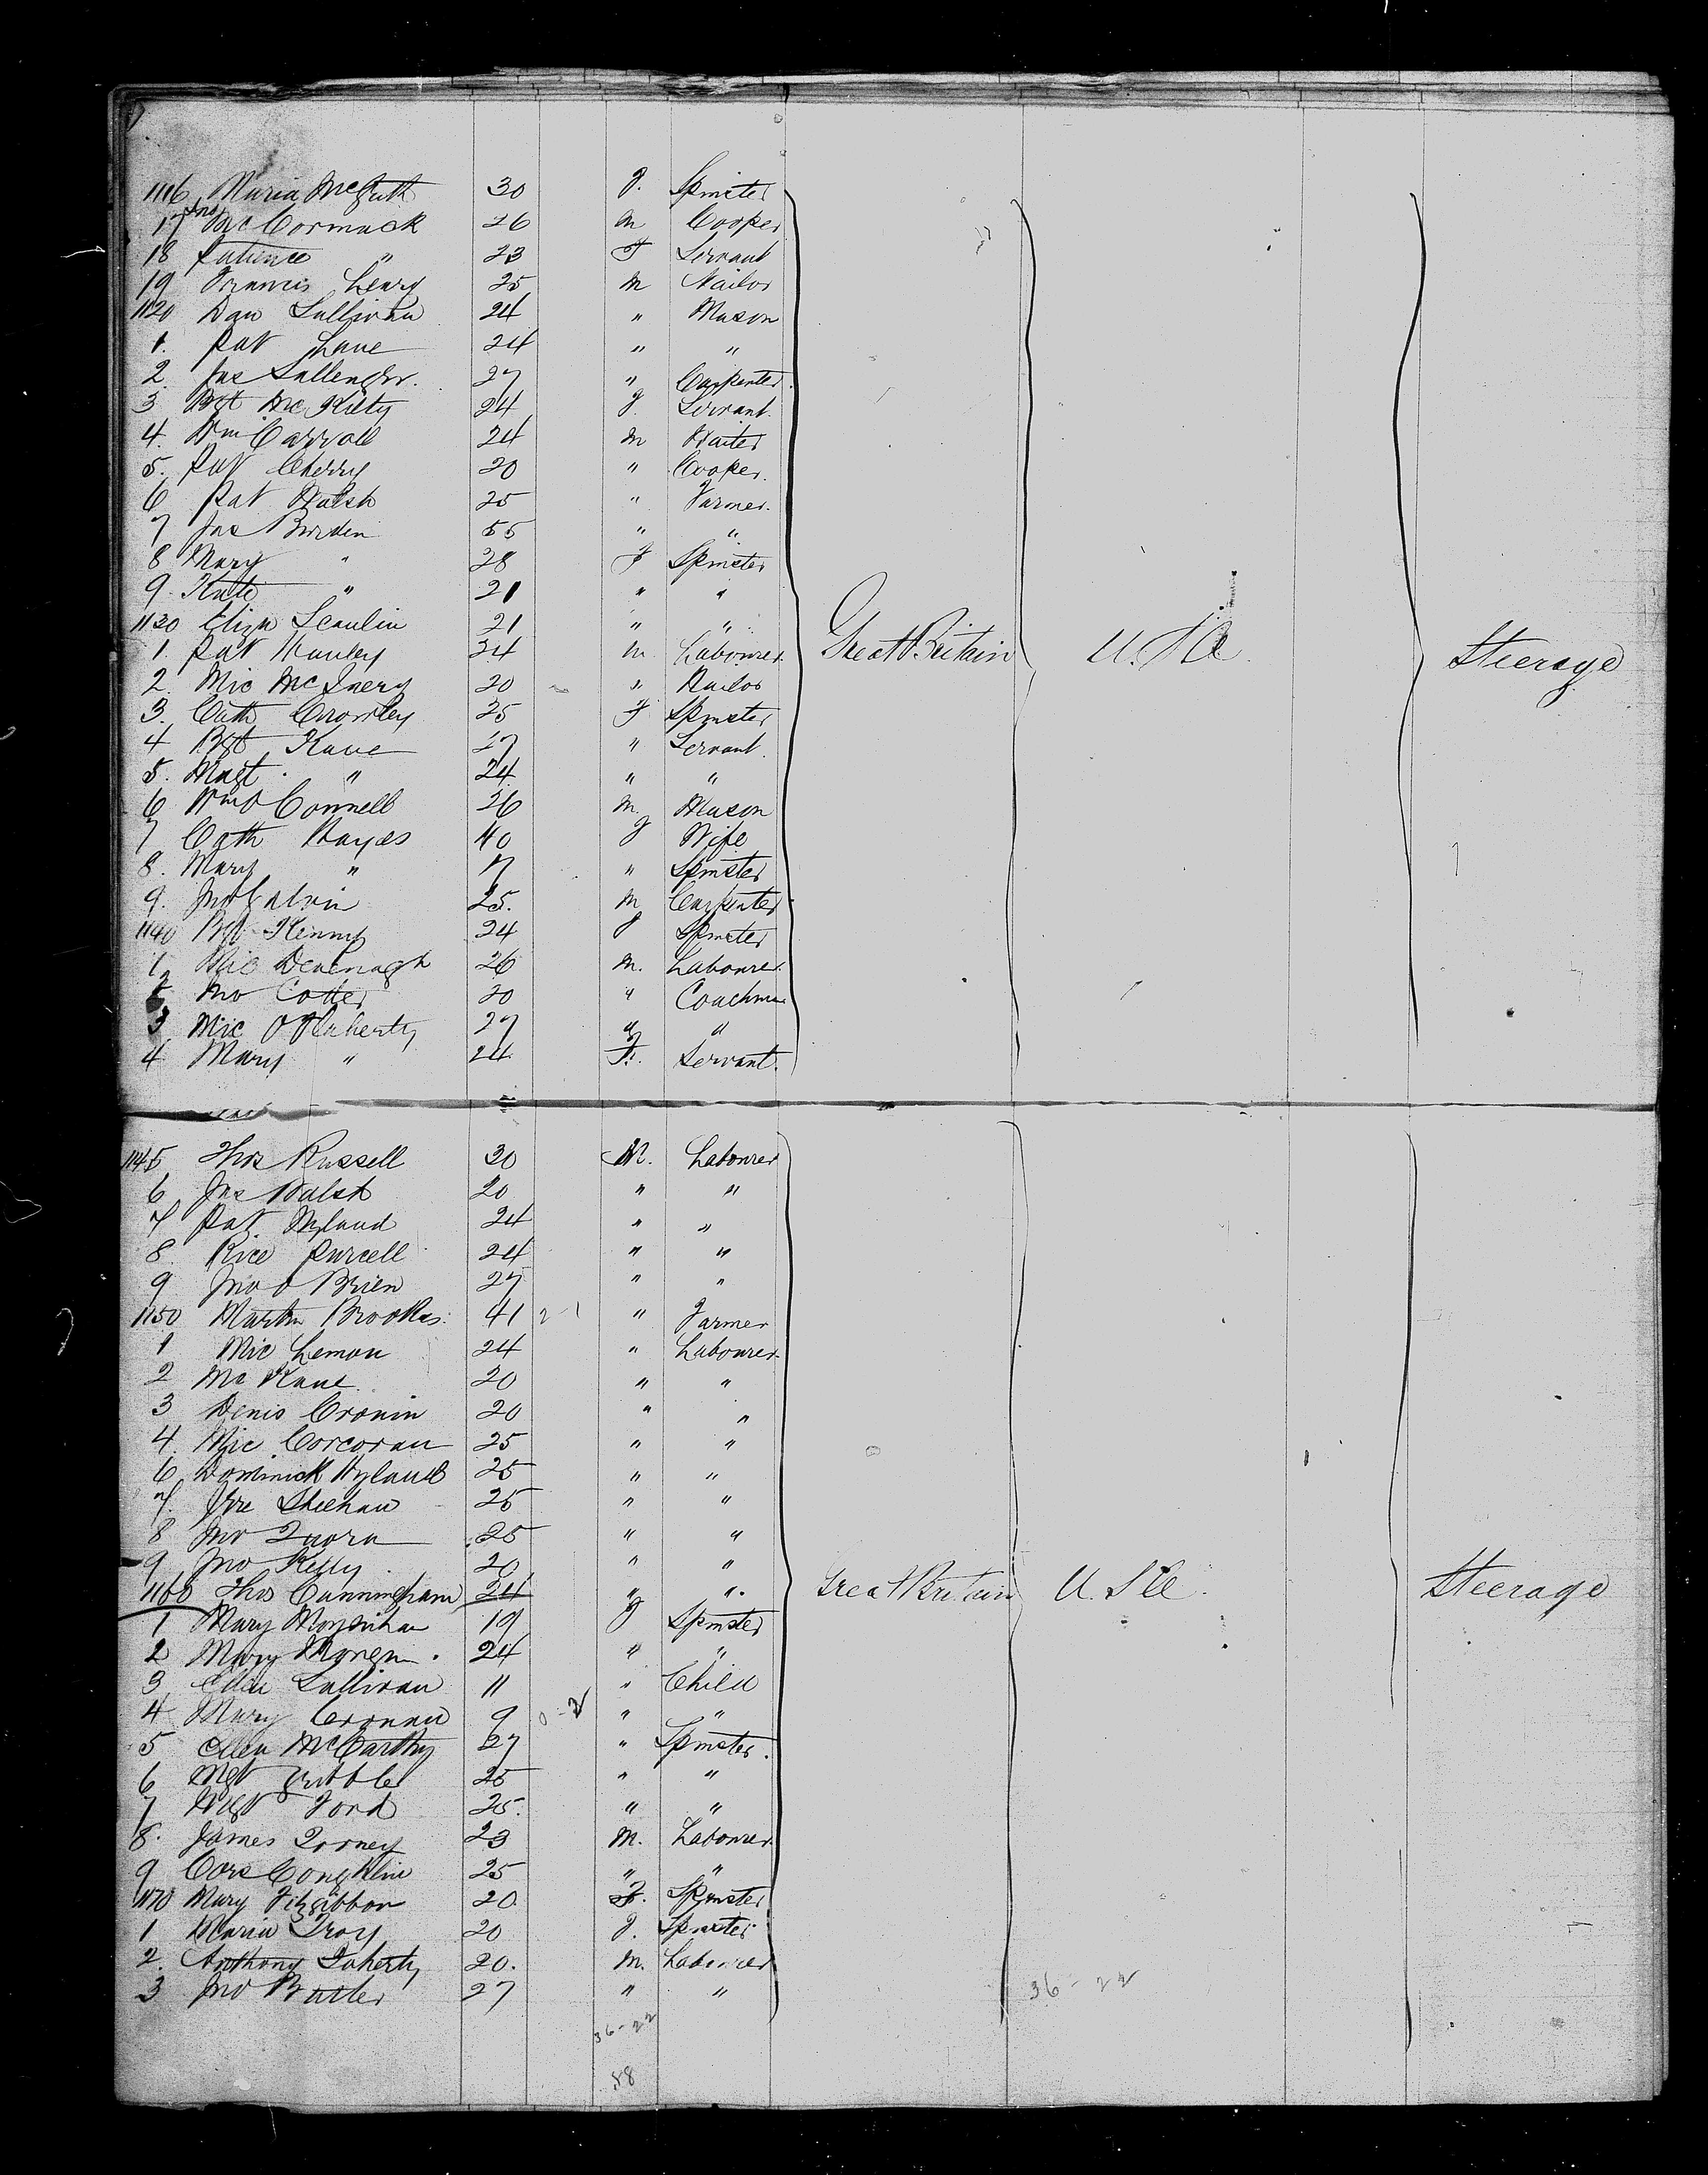 1116 Maria McGuth 30 F. Spinster
17 Jno McCormack 26 m Cooper
18 Patience " 23 F Servant
19 Francis Leary 25 m Nailor
1120 Dan Sullivan 24 " Mason
1. Pat Lane 24 " "
2. Jas Sallenger. 27 " Carpenter.
3 Bgt McKilty 24 F. Servant.
4. Wm Carroll 24 m Waiter
5. Pat Cherry 20 " Cooper.
6 Pat Walsh 25 " Farmer.
7 Jas Burden 55 " "
8 Mary " 28 F Spinster
9. Kate " 21 " "
1130 Eliza Scanlin 21 " "
1. Pat Hanley 34 m. Labourer.
2. Mic McInery 20 " Nailor
3. Cath Crowley 25 F Spinster
4 Bgt Kane 27 " Servant.
5. Magt. " 24 " "
6 Wm O Connell 26 m Mason
7 Cath Hayes 40 F Wife
8. Mary " 17 " Spinster
9. Jno Galvin 25. m Carpenter
1140 Bgt Kenny 24 F Spinster
1 Mic Devenagh 26 m. Labourer.
2 Jno Cotter 20 " Coachman
3 Mic O Flaherty 27 " "
4 Mary " 24. F. Servant.
Great Britain U.S.A. Steerage
1145 Thos Russell 30 M. Labourer
6 Jas Walsh 20 " "
7 Pat Nyland 24 " "
8. Rice Purcell 24 " "
9 Jno O Brien 27 " "
1150 Martin Brookes. 41 2-1 " Farmer
1 Mic Lemon 24 " Labourer.
2 Kane 20 " "
3 Denis Cronin 20 " "
4. Mic Corcoran 25 " "
6 Dominick Hyland 25 " "
7. Jre Sheehan 25 " "
8 Jno 25 " "
9 Jno Kelly 20 " "
1160 Thos Cunningham 24 " ".
1 Mary Moynihan 19 F Spinster
2 Mary 24 " "
3 Ellen Sullivan 11 " Child
4 Mary Cronan 9 0-2 " "
5 Ellen McCarthy 27 " Spinster.
6 Mgt Gribble 25 " "
7 Mgt Ford 25. " "
8. James Torney 23 M. Labourer.
9 Cors Coughlin 25 " "
1170 Mary Fitzgibbon 20. F. Spinster
1 Maria Troy 20 F. Spinster
2. Anthony Doherty 20. m. Labourer
3 Jno Butler 27 " "
Great Britain U.S.A. Steerage
36-22
36-22
.88